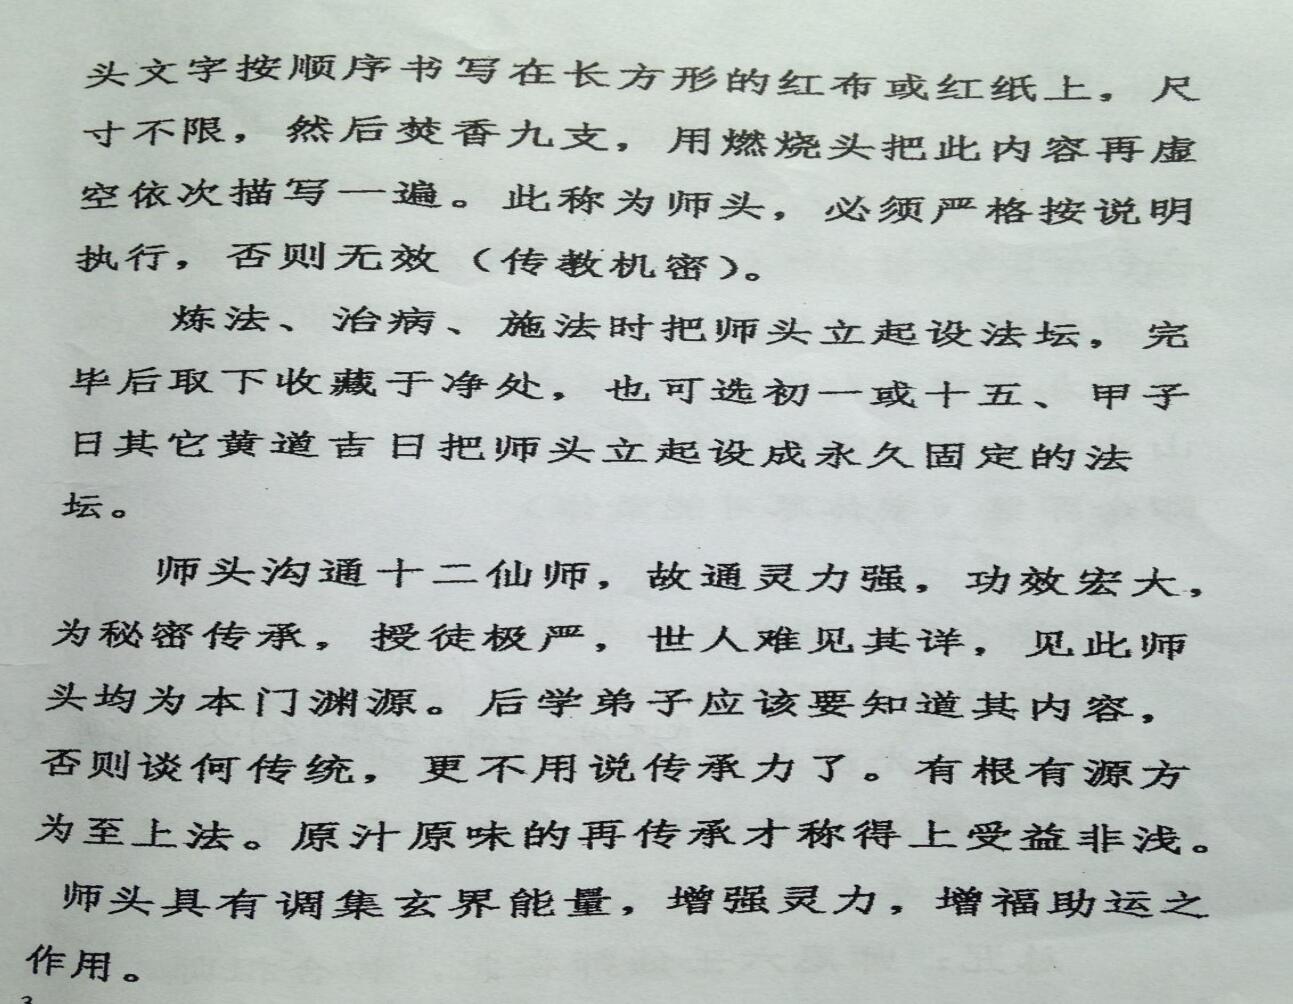 头文字按顺序书写在长方形的红布或红纸上，尺
寸不限，然后焚香九支，用燃烧头把此内容再虚
空依次描写一遍。此称为师头，必须严格按说明
执行，否则无效（传教机密）。
炼法、治病、施法时把师头立起设法坛，完
毕后取下收藏于净处，也可选初一或十五、甲子
日其它黄道吉日把师头立起设成永久固定的法
坛。
师头沟通十二仙师，故通灵力强，功效宏大，
为秘密传承，授徒极严，世人难见其详，见此师
头均为本门渊源。后学弟子应该要知道其内容，
否则谈何传统，更不用说传承力了。有根有源方
为至上法。原汁原味的再传承才称得上受益非浅。
师头具有调集玄界能量，增强灵力，增福助运之
作用。